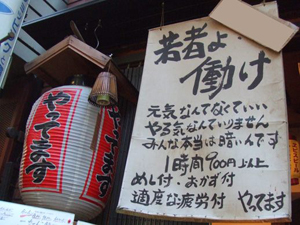 若者よ
働け
元気なんてなくていい
やる気なんていりません
みんな本当は暗いんです
1時間700円以上
めし付・おかず付
適度な疲労付
やってます
やってます
やってます